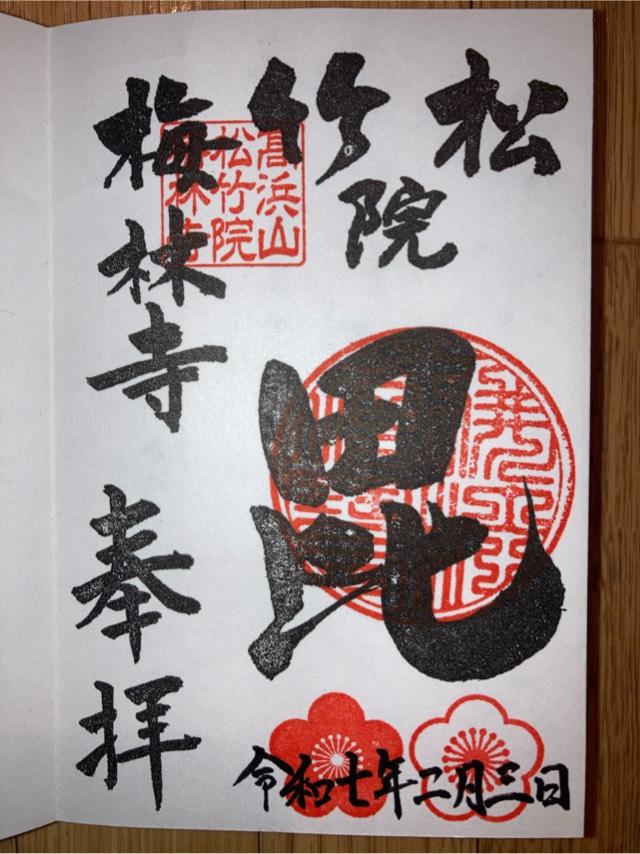 松竹院
毘
梅林寺
奉拝
令和七年二月三日
高浜山
松竹院
梅林寺